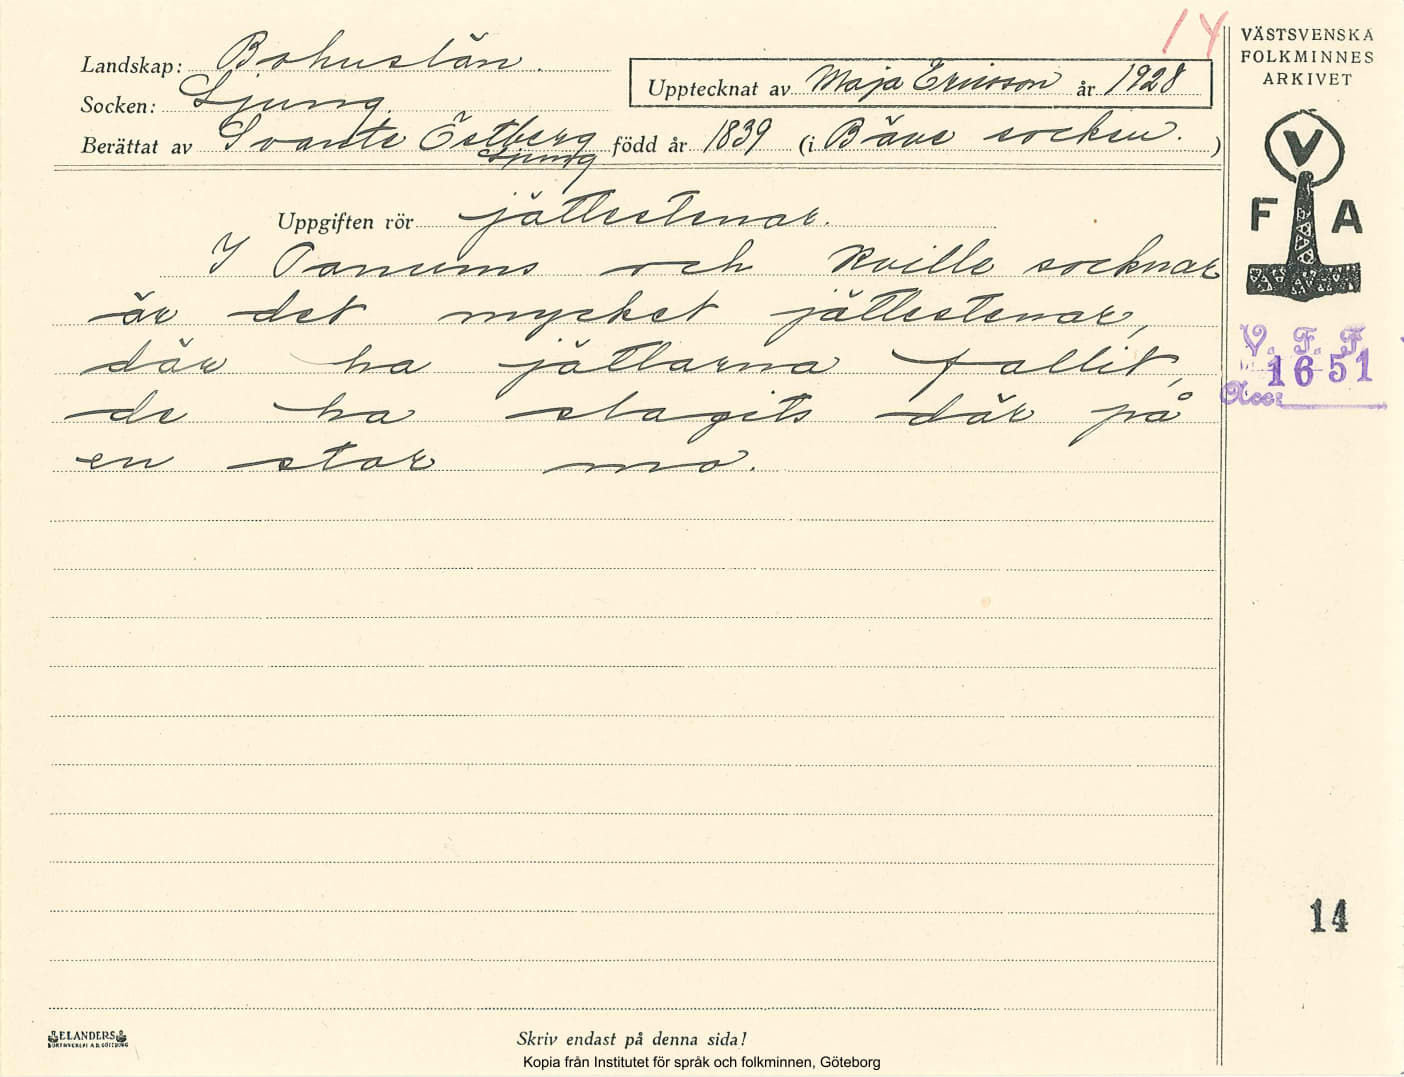 14
Landskap: Bohuslän.
Socken: Ljung.
Upptecknat av Maja Ericsson år 1928
Berättat av Svante Östberg född år 1839 (i Bäve socken.)
Ljung
Uppgiften rör jättestenar.
I Tanums och Kville socknar
är det mycket jättestenar,
där ha jättarna fallit,
de ha slagits där på
en stor mo.
VÄSTSVENSKA
FOLKMINNES
ARKIVET
V
F A
V. F. F.
1651
Acc:
14
ELANDERS
BOKTRYCKERI A.B. GÖTEBORG
Skriv endast på denna sida!
Kopia från Institutet för språk och folkminnen, Göteborg